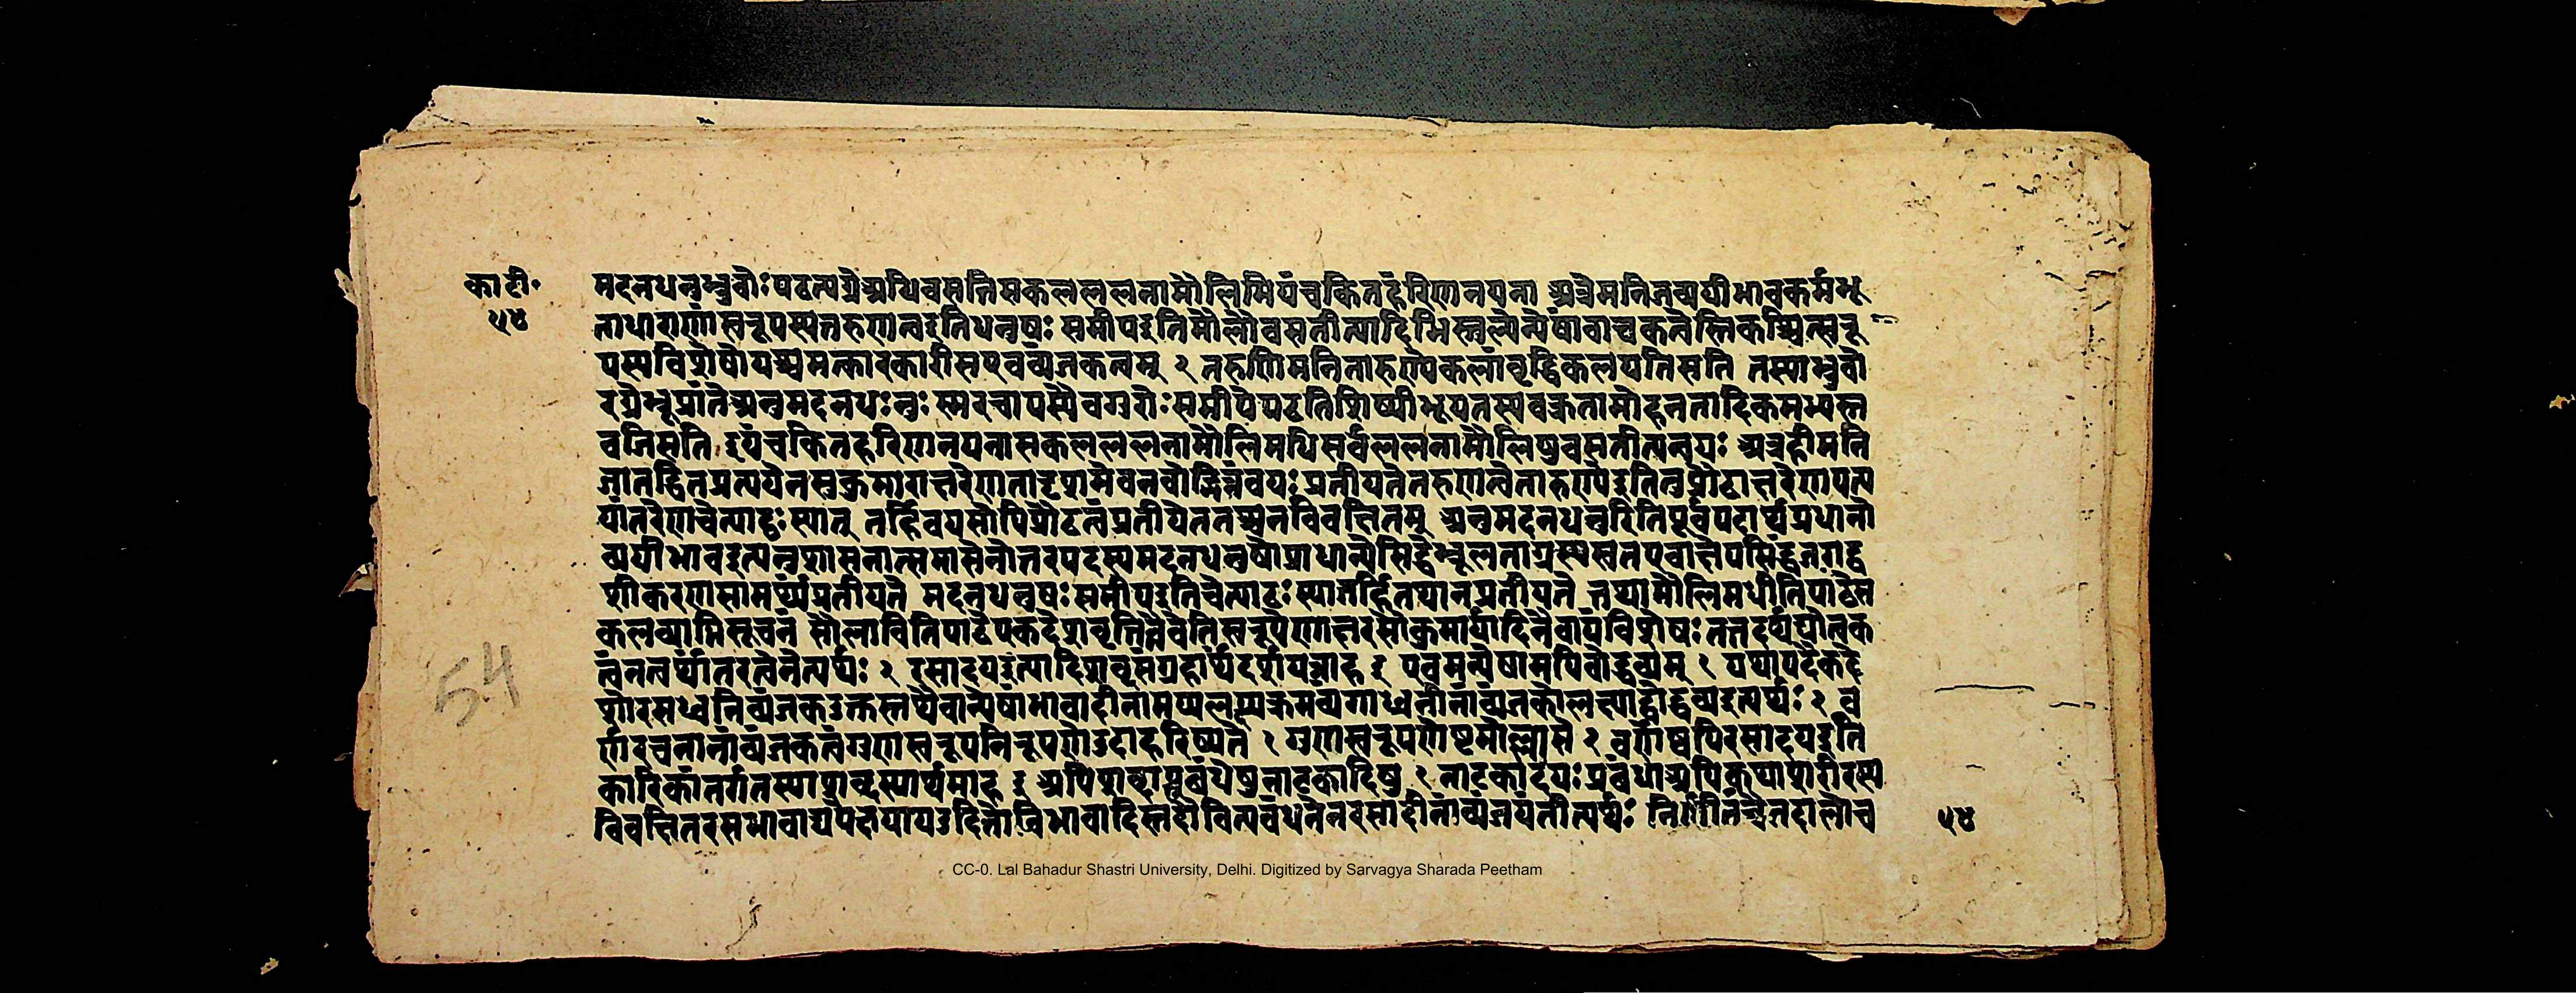 का टी॰
५४
मदनधनुर्भ्रुवोः पठत्यग्रे अधिवसति सकलललनामौलिमियं चकितहरिणनयना अत्रेमनिजव्ययीभावकर्मभू
ताधाराणां स्वरूपस्य तरुणत्व इति धनुषः समीप इति मौलौ वसतीत्यादिभिस्तुल्येप्येषां वाचकत्वेस्ति कश्चित्स्वरू
पस्य विशेषो यश्चमत्कारकारी स एव व्यंजकत्वम् २ तरुणिमनि तारुण्ये कलां वृद्धिं कलयति सति तस्या भ्रुवो
रग्रे भ्रूप्रांते अनुमदनधनुः स्मरचापस्यैव गुरोः समीपे पठति शिष्यीभूय तस्य वक्रतामोहनतादिकमभ्यस्त
वति सति इयं चकितहरिणनयना सकलललनामौलिमधि सर्वललनामौलिषु वसतीत्यन्वयः अत्र हीमनि
जातद्धितप्रत्ययेन सुकुमाराक्षरेण तादृशमेव नवोद्भिन्नं वयः प्रतीयते न तरुणत्वे तारुण्ये इति तु प्रौढाक्षरेण पत्य
यांतरेण चेत्पाठः स्यात् तर्हि वयसोपि प्रौढत्वं प्रतीयेत तच्च न विवक्षितम् अनुमदनधनुरिति पूर्वपदार्थप्रधानो
व्ययीभाव इत्यनुशासनात्समासेनोत्तरपदस्य मदनधनुषो प्राधान्ये सिद्धे भ्रूलताग्रस्य स्वत एवाक्षेपसिद्धजगद्व
शीकरणसामर्थ्यं प्रतीयते मदनधनुषः समीप इति चेत्पाठः स्यात्तर्हि तथा न प्रतीयते तथा मौलिमधीति पाठे स
कलव्याप्तिसूचनं मौलाविति पाठे एकदेशवृत्तितैवेति स्वरूपेणाक्षरसौकुमार्यादिनैवायं विशेषः तत्तदर्थद्योतक
त्वं न त्वर्थांतरत्वेनेत्यर्थः २ रसादय इत्यादिशब्दसंग्रहार्थं दर्शयन्नाह ३ एवमन्येषामपि बोद्धव्यम् १ यथा पदैकदे
शो रसध्वनिव्यंजक उक्तस्तथैवान्येषां भावादीनामप्यलक्ष्यक्रमव्यंगध्वनीनां व्यंजकोलक्ष्याद्बोद्धव्य इत्यर्थः २ व
र्णरचनानां व्यंजकत्वं गुणस्वरूपनिरूपणे उदाहरिष्यते १ गुणस्वरूपणेष्टमोल्लासे २ वर्णेष्वपि रसादय इति
कारिकांतर्गतस्यापिशब्दस्यार्थमाह ३ अपिशब्दात्प्रबंधेषु नाटकादिषु १ नाटकादयः प्रबंधा अपि कथाशरीरस्य
विवक्षितरसभावाद्यपेक्षया य उदितो विभावादिस्तदौचित्यवंधनेन रसादीनां व्यंजयंतीत्यर्थः निर्णीतंचैतदालोच
५४
54
CC-0. Lal Bahadur Shastri University, Delhi. Digitized by Sarvagya Sharada Peetham